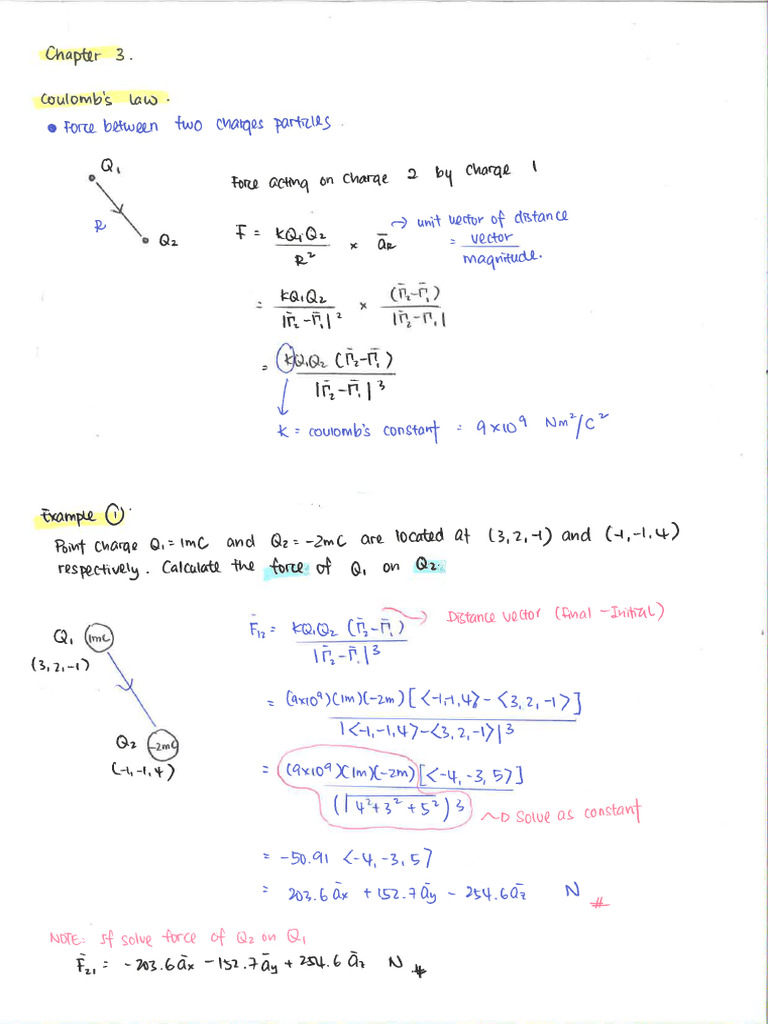 Chapter 3.
Coulomb's law.
• Force between two charges particles.
Q₁
R
Q₂
Force acting on charge 2 by charge 1
F̄ = kQ₁Q₂ / R² × āR → unit vector of distance
= vector / magnitude.
= kQ₁Q₂ / |r̄₂-r̄₁|² × (r̄₂-r̄₁) / |r̄₂-r̄₁|
= kQ₁Q₂ (r̄₂-r̄₁) / |r̄₂-r̄₁|³
k = coulomb's constant = 9×10⁹ Nm²/C²
Example ①
Point charge Q₁=1mC and Q₂=-2mC are located at (3,2,-1) and (-1,-1,4)
respectively. Calculate the force of Q₁ on Q₂.
Q₁ 1mC
(3,2,-1)
Q₂ -2mC
(-1,-1,4)
F̄₁₂ = kQ₁Q₂ (r̄₂-r̄₁) / |r̄₂-r̄₁|³ → Distance vector (final -Initial)
= (9×10⁹)(1m)(-2m)[<-1,-1,4>-<3,2,-1>] / |<-1,-1,4>-<3,2,-1>|³
= (9×10⁹)(1m)(-2m)[<-4,-3,5>] / (√4²+3²+5²)³ → Solve as constant
= -50.91 <-4,-3,5>
= 203.6āx +152.7āy - 254.6āz N #
NOTE: If solve force of Q₂ on Q₁
F̄₂₁ = -203.6āx -152.7āy +254.6āz N #